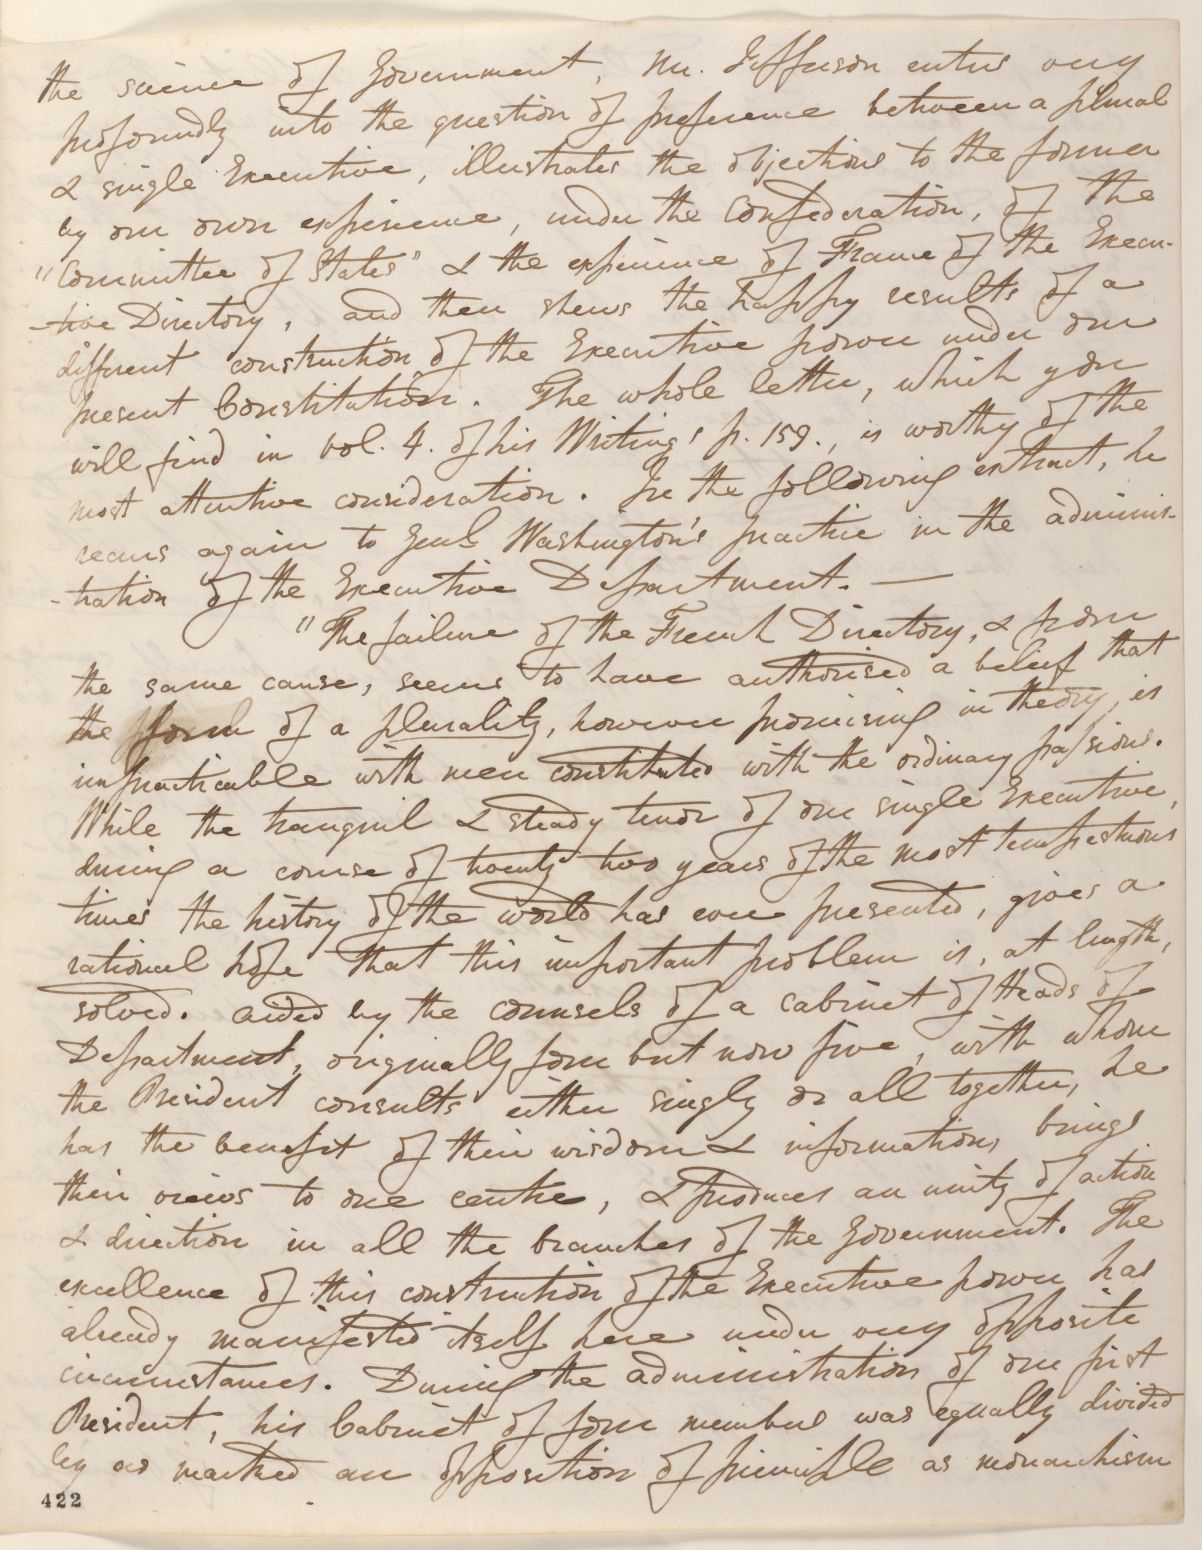 the science of Government, Mr. Jefferson enters very
profoundly into the question of preference between a plural
& single Executive, illustrates the objections to the former
by our own experience, under the Confederation, of the
"Committee of States" & the experience of France of the Execu-
-tive Directory, and then shews the happy results of a
different construction of the Executive power under our
present Constitution. The whole letter, which you
will find in vol. 4. of his Writings p. 159., is worthy of the
most attentive consideration. In the following extract, he
recurs again to Genl Washington's practice in the adminis-
-tration of the Executive Department. —
"The failure of the French Directory, & from
the same cause, seems to have authorised a belief that
the form of a plurality, however promising in theory, is
impracticable with men constituted with the ordinary passions.
While the tranquil & steady tenor of our single Executive,
during a course of twenty two years of the most tempestuous
times the history of the world has ever presented, gives a
rational hope that this important problem is, at length,
solved. aided by the counsels of a cabinet of Heads of
Department, originally four but now five, with whom
the President consults either singly or all together, he
has the benefit of their wisdom & information, brings
their views to one centre, & produces an unity of action
& direction in all the branches of the Government. The
excellence of this construction of the Executive power has
already manifested itself here under very opposite
circumstances. During the administration of our first
President, his Cabinet of four members was equally divided
by as marked an opposition of principle as monarchism
422